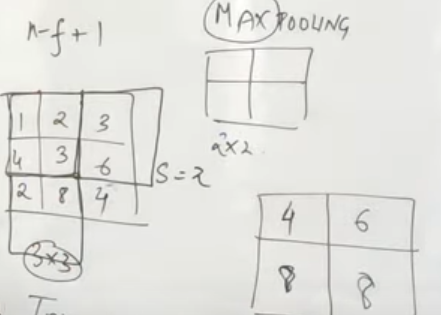 n-f+1
MAX POOLING
1 2 3
4 3 6
2 8 4
S=2
2×2
3×3
4 6
8 8